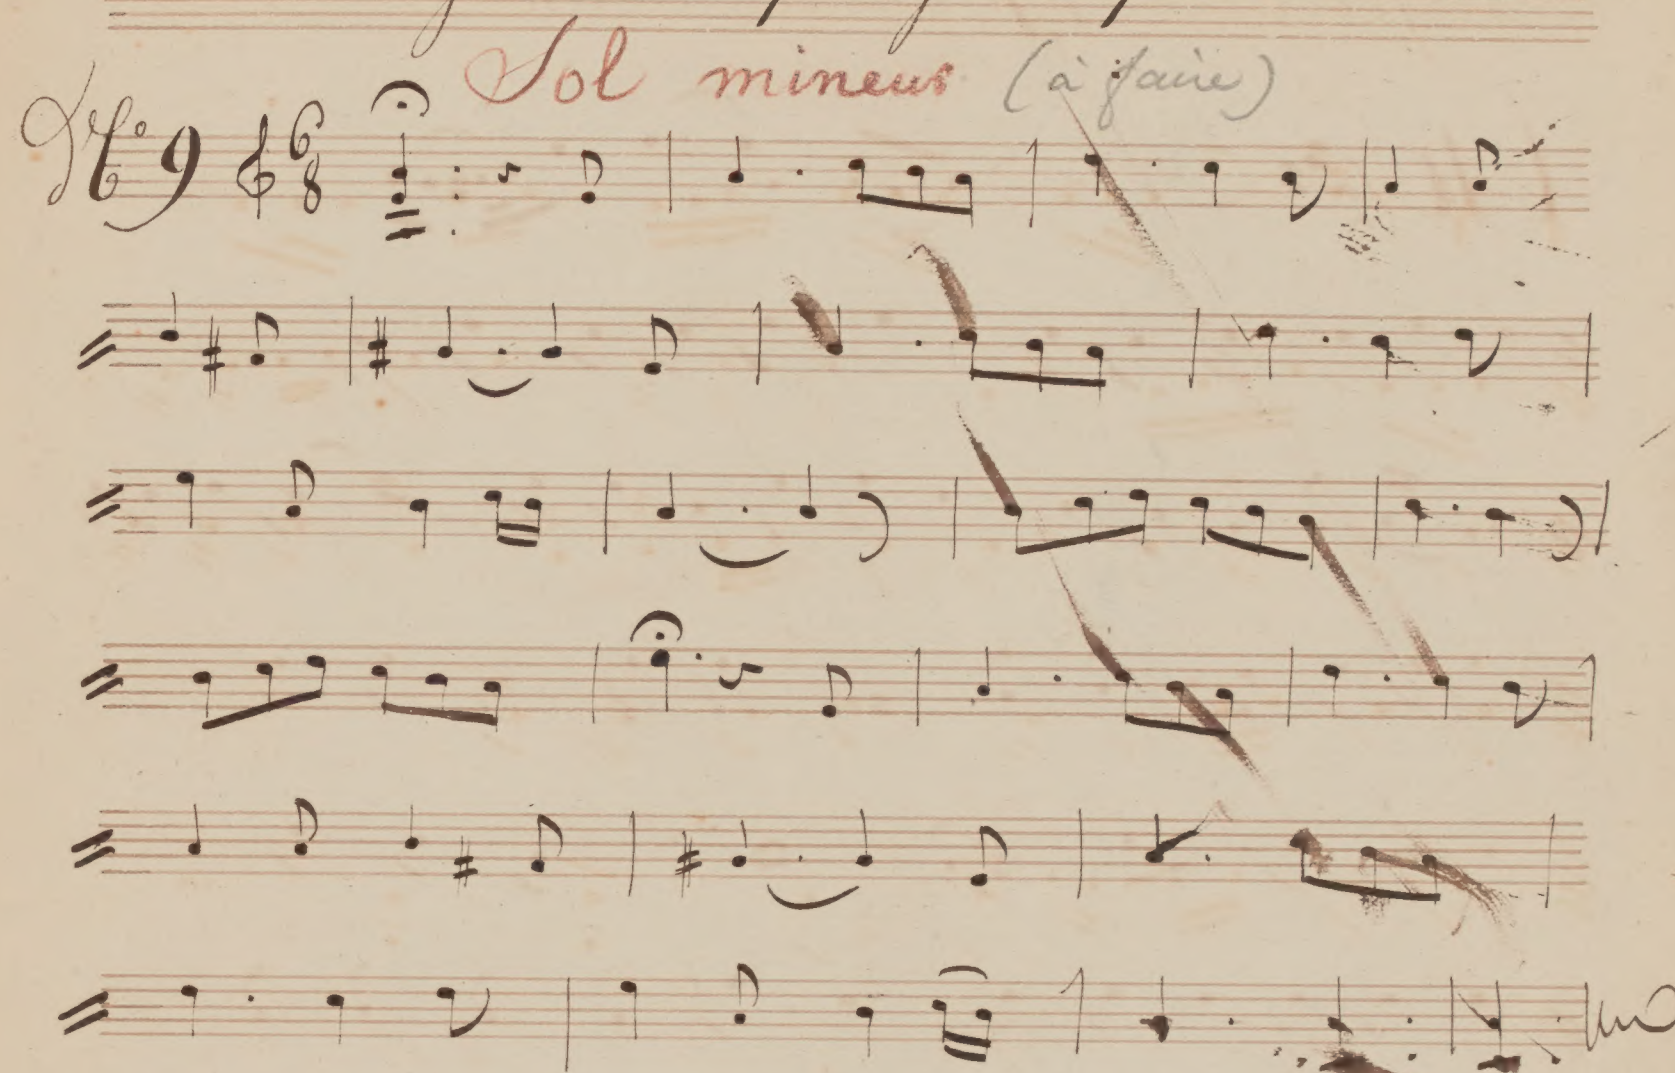 Sol mineur (à faire)
Nº 9
6
8